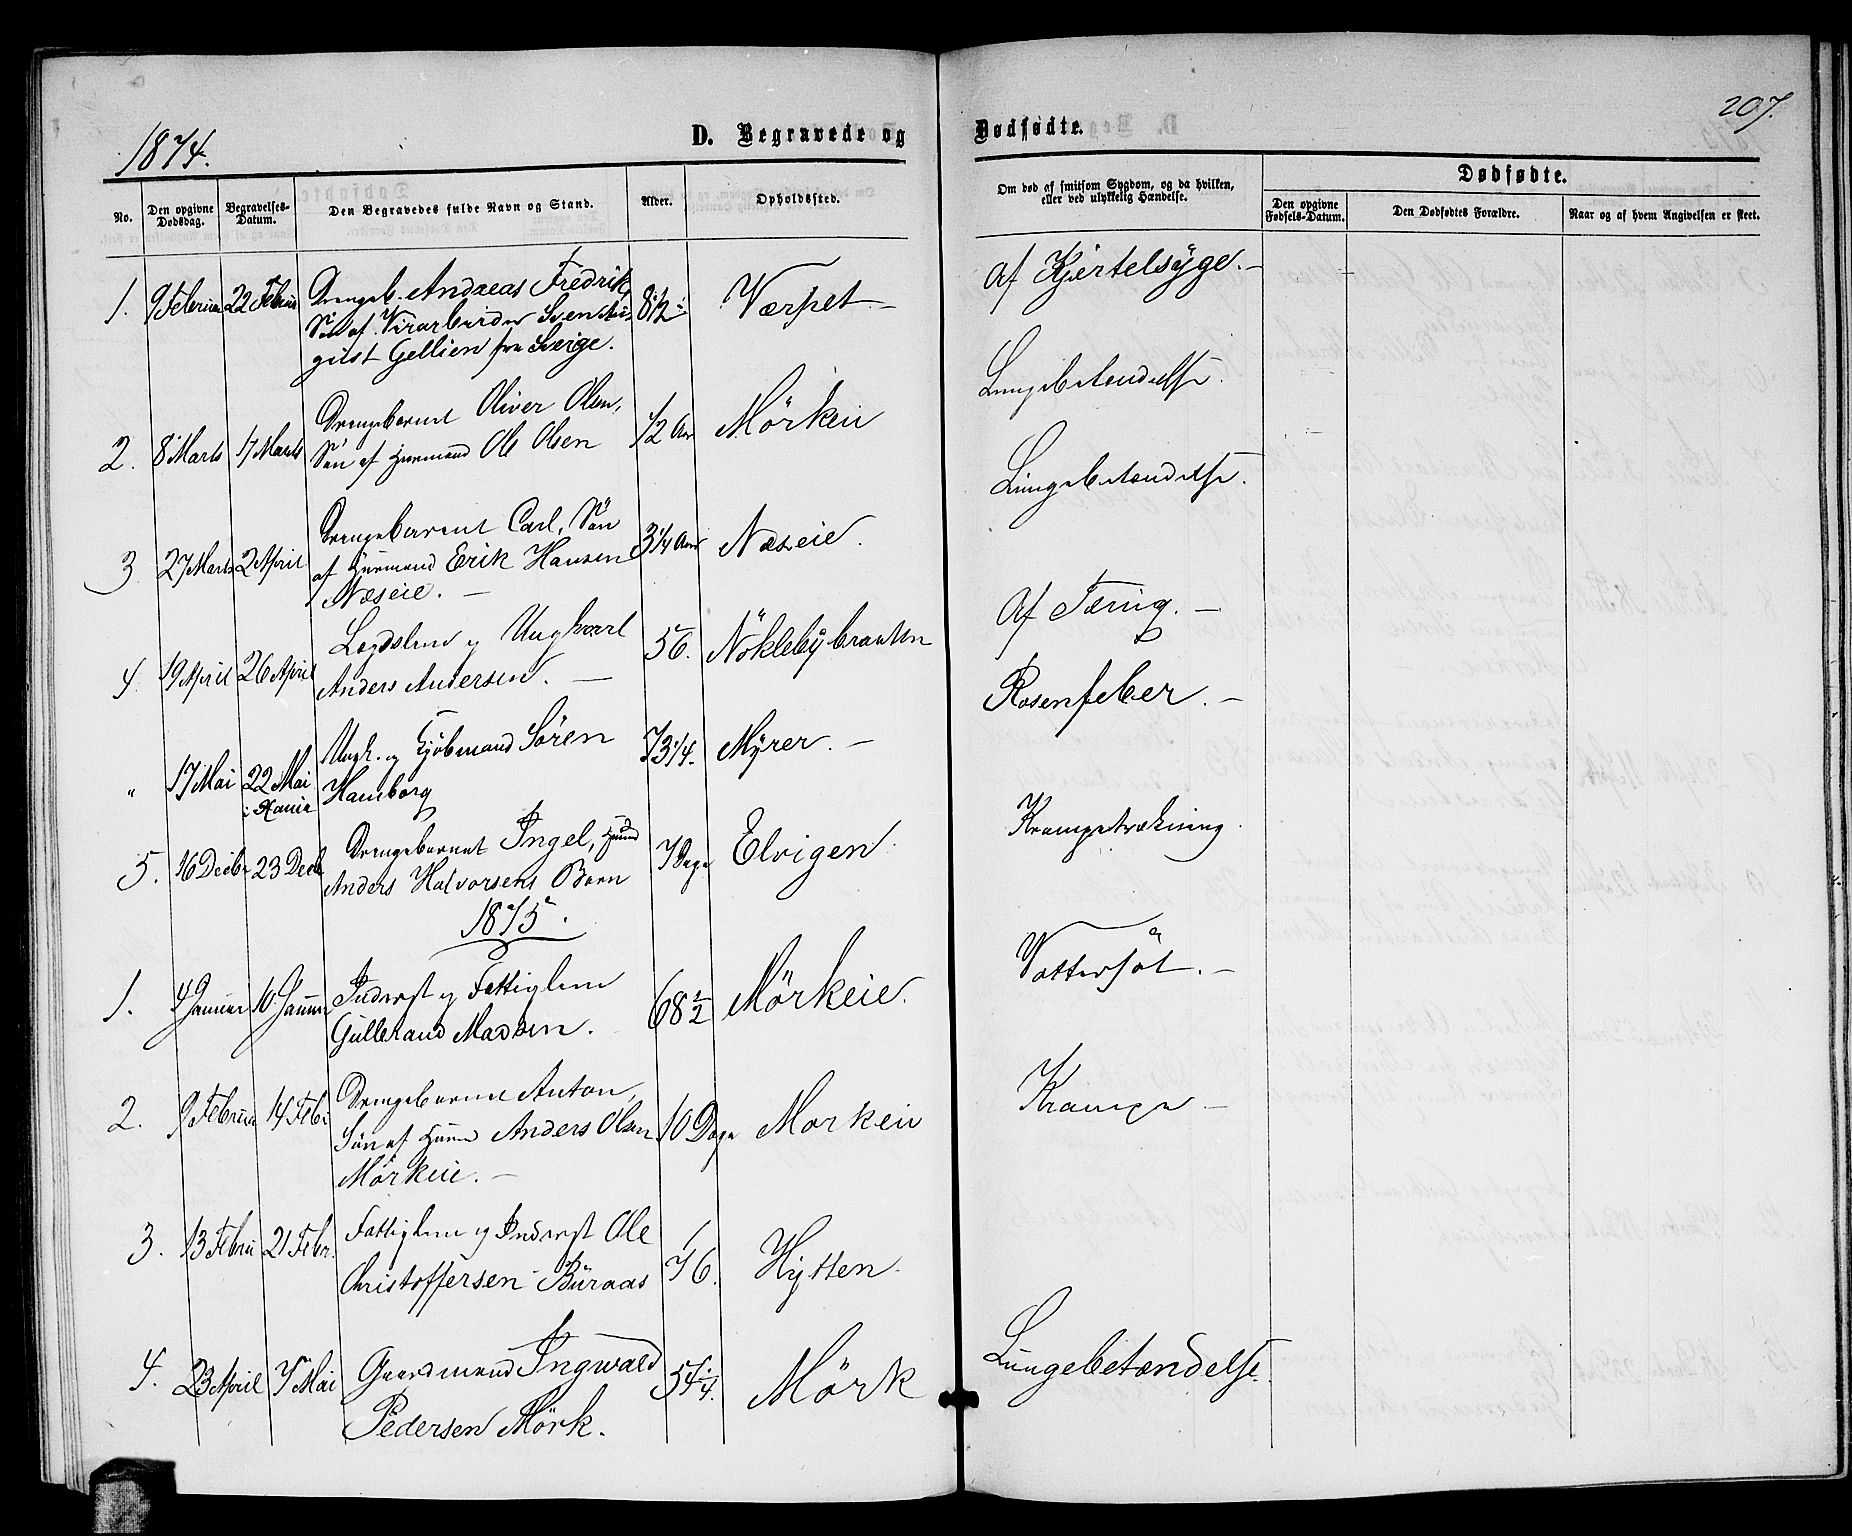 207.
1874.
D. Begravede og Dødfødte.
No.
Den opgivne Dødsdag.
Begravelses-Datum.
Den Begravedes fulde Navn og Stand.
Alder.
Opholdssted.
Om død af smitsom Sygdom, og da hvilken, eller ved ulykkelig Hændelse.
Dødfødte.
Den opgivne Fødsels-Datum.
Den Dødfødtes Forældre.
Naar og af hvem Angivelsen er skeet.
1. 9 Februar 22 Februar Drengeb. Andreas Fredrik, 8 1/2 Værpet. — Af Kjertelsyge. —
Søn af Svend Au-
gust Gellien fra Sverige.
2. 8 Marts 17 Marts Drengebarnet Oliver Olsen, 1/2 Aar Mörkeie Lungebetændelse.
Søn af Huusmand Ole Olsen
3 27 Marts 2 April Drengebarnet Carl, Søn 3 1/4 Aar Næseie. Lungebetændelse.
af Huusmand Erik Hansen
Næseie. —
4. 19 April 26 April Lægdslem og Ungkarl 56. Nöklebybraaten Af Tæring. —
Anders Andersen. —
" 17 Mai 22 Mai Ungk. og Kjöbmand Sören 73 1/4. Myrer. — Rosenfeber. —
Hamborg
5. 16 Decbr 23 Decb Drengebarnet Ingel, Huusmd 7 Dage Elvigen. Krampetrækning.
Anders Halvorsens Barn
1875.
1. 4 Januar 10 Januar Inderst og Fattiglem 68 1/2 Mörkeie. Vattersöt. —
Gulbrand Madsen.
2. 9 Februar 14 Febr Drengebarnet Anton, 10 Dage Mörkeie Krampe —
Søn af Huusmd Anders Olsen
Mörkeie. —
3. 13 Febru 21 Febr. Fattiglem og Inderst Ole 76. Hytten.
Christoffersen Buraas
4. 23 April 7 Mai Gaardmand Ingwald 54 1/4. Mörk Lungebetændelse.
Pedersen Mörk.